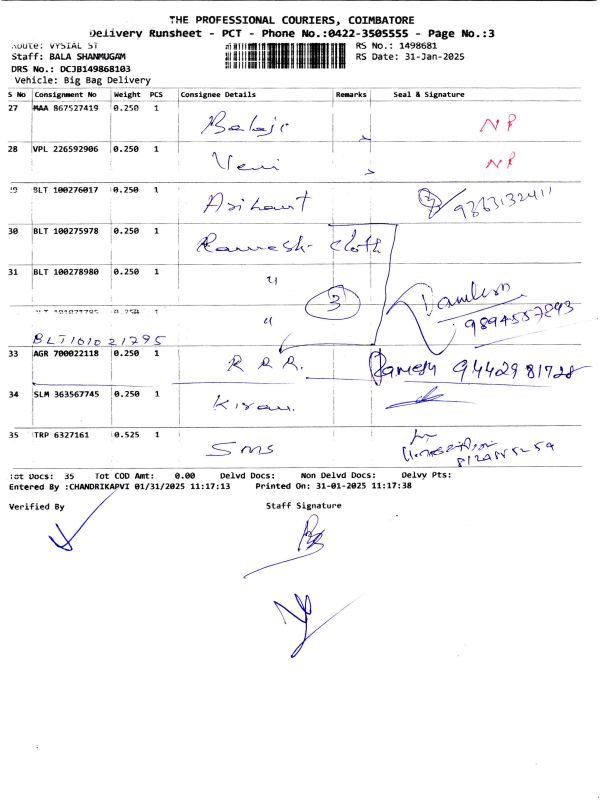 THE PROFESSIONAL COURIERS, COIMBATORE
Delivery Runsheet - PCT - Phone No.:0422-3505555 - Page No.:3
Route: VYSIAL ST RS No.: 1498681
Staff: BALA SHANMUGAM RS Date: 31-Jan-2025
DRS No.: DCJB149868103
Vehicle: Big Bag Delivery
S No Consignment No Weight PCS Consignee Details Remarks Seal & Signature
27 MAA 867527419 0.250 1 Balaji NP
28 VPL 226592906 0.250 1 Veni NP
29 BLT 100276017 0.250 1 Arihant 9363132411
30 BLT 100275978 0.250 1 Ramesh cloth
31 BLT 100278980 0.250 1 "
0.250 1 " 3 9894557893
BLT101021795
33 AGR 700022118 0.250 1 R R R. Ramesh 9442981728
34 SLM 363567745 0.250 1 Kiran.
35 TRP 6327161 0.525 1 Sms
Tot Docs: 35 Tot COD Amt: 0.00 Delvd Docs: Non Delvd Docs: Delvy Pts:
Entered By :CHANDRIKAPVI 01/31/2025 11:17:13 Printed On: 31-01-2025 11:17:38
Verified By Staff Signature